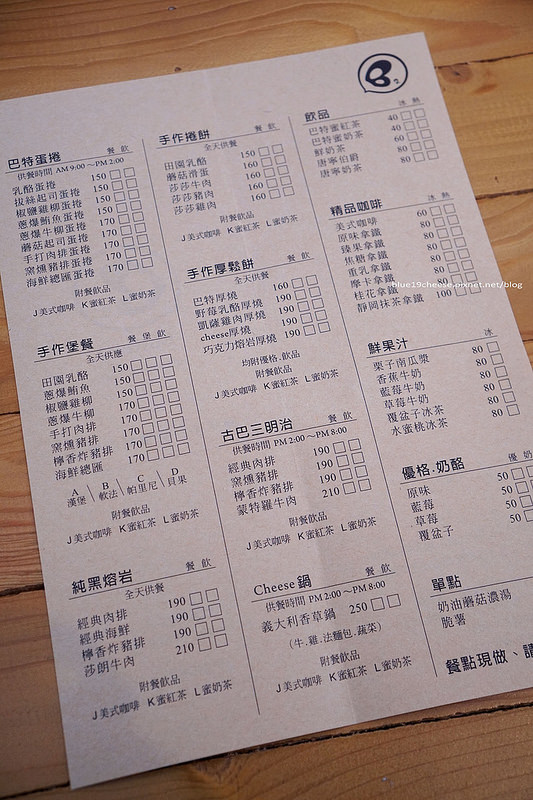 B2
巴特蛋捲 餐 飲
供餐時間 AM 9:00 ~PM 2:00
乳酪蛋捲 150
拔絲起司蛋捲 150
椒鹽雞柳蛋捲 150
蔥爆鮪魚蛋捲 150
蔥爆牛柳蛋捲 170
蘑菇起司蛋捲 170
手打肉排蛋捲 170
窯燻豬排蛋捲 170
海鮮總匯蛋捲 170
附餐飲品
J美式咖啡 K蜜紅茶 L蜜奶茶
手作堡餐 餐 堡 飲
全天供應
田園乳酪 150
蔥爆鮪魚 150
椒鹽雞柳 150
蔥爆牛柳 170
手打肉排 170
窯燻豬排 170
檸香炸豬排 170
海鮮總匯 170
A 漢堡 \ B 軟法 \ C 帕里尼 \ D 貝果
附餐飲品
J美式咖啡 K蜜紅茶 L蜜奶茶
純黑熔岩 餐 飲
全天供餐
經典肉排 190
經典海鮮 190
檸香炸豬排 190
莎朗牛肉 210
附餐飲品
J美式咖啡 K蜜紅茶 L蜜奶茶
手作捲餅 餐 飲
全天供餐
田園乳酪 150
蘑菇滑蛋 160
莎莎牛肉 160
莎莎豬肉 160
莎莎雞肉 160
附餐飲品
J美式咖啡 K蜜紅茶 L蜜奶茶
手作厚鬆餅 餐 飲
全天供餐
巴特厚燒 160
野莓乳酪厚燒 190
凱薩雞肉厚燒 190
cheese厚燒 190
巧克力熔岩厚燒 190
均附優格.飲品
附餐飲品
J美式咖啡 K蜜紅茶 L蜜奶茶
古巴三明治 餐 飲
供餐時間 PM 2:00 ~ PM 8:00
經典肉排 190
窯燻豬排 190
檸香炸豬排 190
蒙特羅牛肉 210
附餐飲品
J美式咖啡 K蜜紅茶 L蜜奶茶
Cheese 鍋 餐 飲
供餐時間 PM 2:00 ~ PM 8:00
義大利香草鍋 250
(牛.雞.法麵包.蔬菜)
附餐飲品
J美式咖啡 K蜜紅茶 L蜜奶茶
飲品 冰 熱
巴特蜜紅茶 40
巴特蜜奶茶 40
鮮奶茶 60
唐寧伯爵 80
唐寧奶茶 80
精品咖啡 冰 熱
美式咖啡 60
原味拿鐵 80
臻果拿鐵 80
焦糖拿鐵 80
重乳拿鐵 80
摩卡拿鐵 80
桂花拿鐵 80
靜岡抹茶拿鐵 100
blue19cheese.pixnet.net/blog
鮮果汁 冰
栗子南瓜漿 80
香蕉牛奶 80
藍莓牛奶 80
草莓牛奶 80
覆盆子冰茶 80
水蜜桃冰茶 80
優格.奶酪 優 奶
原味 50
藍莓 50
草莓 50
覆盆子 50
單點
奶油蘑菇濃湯
脆薯
餐點現做、請